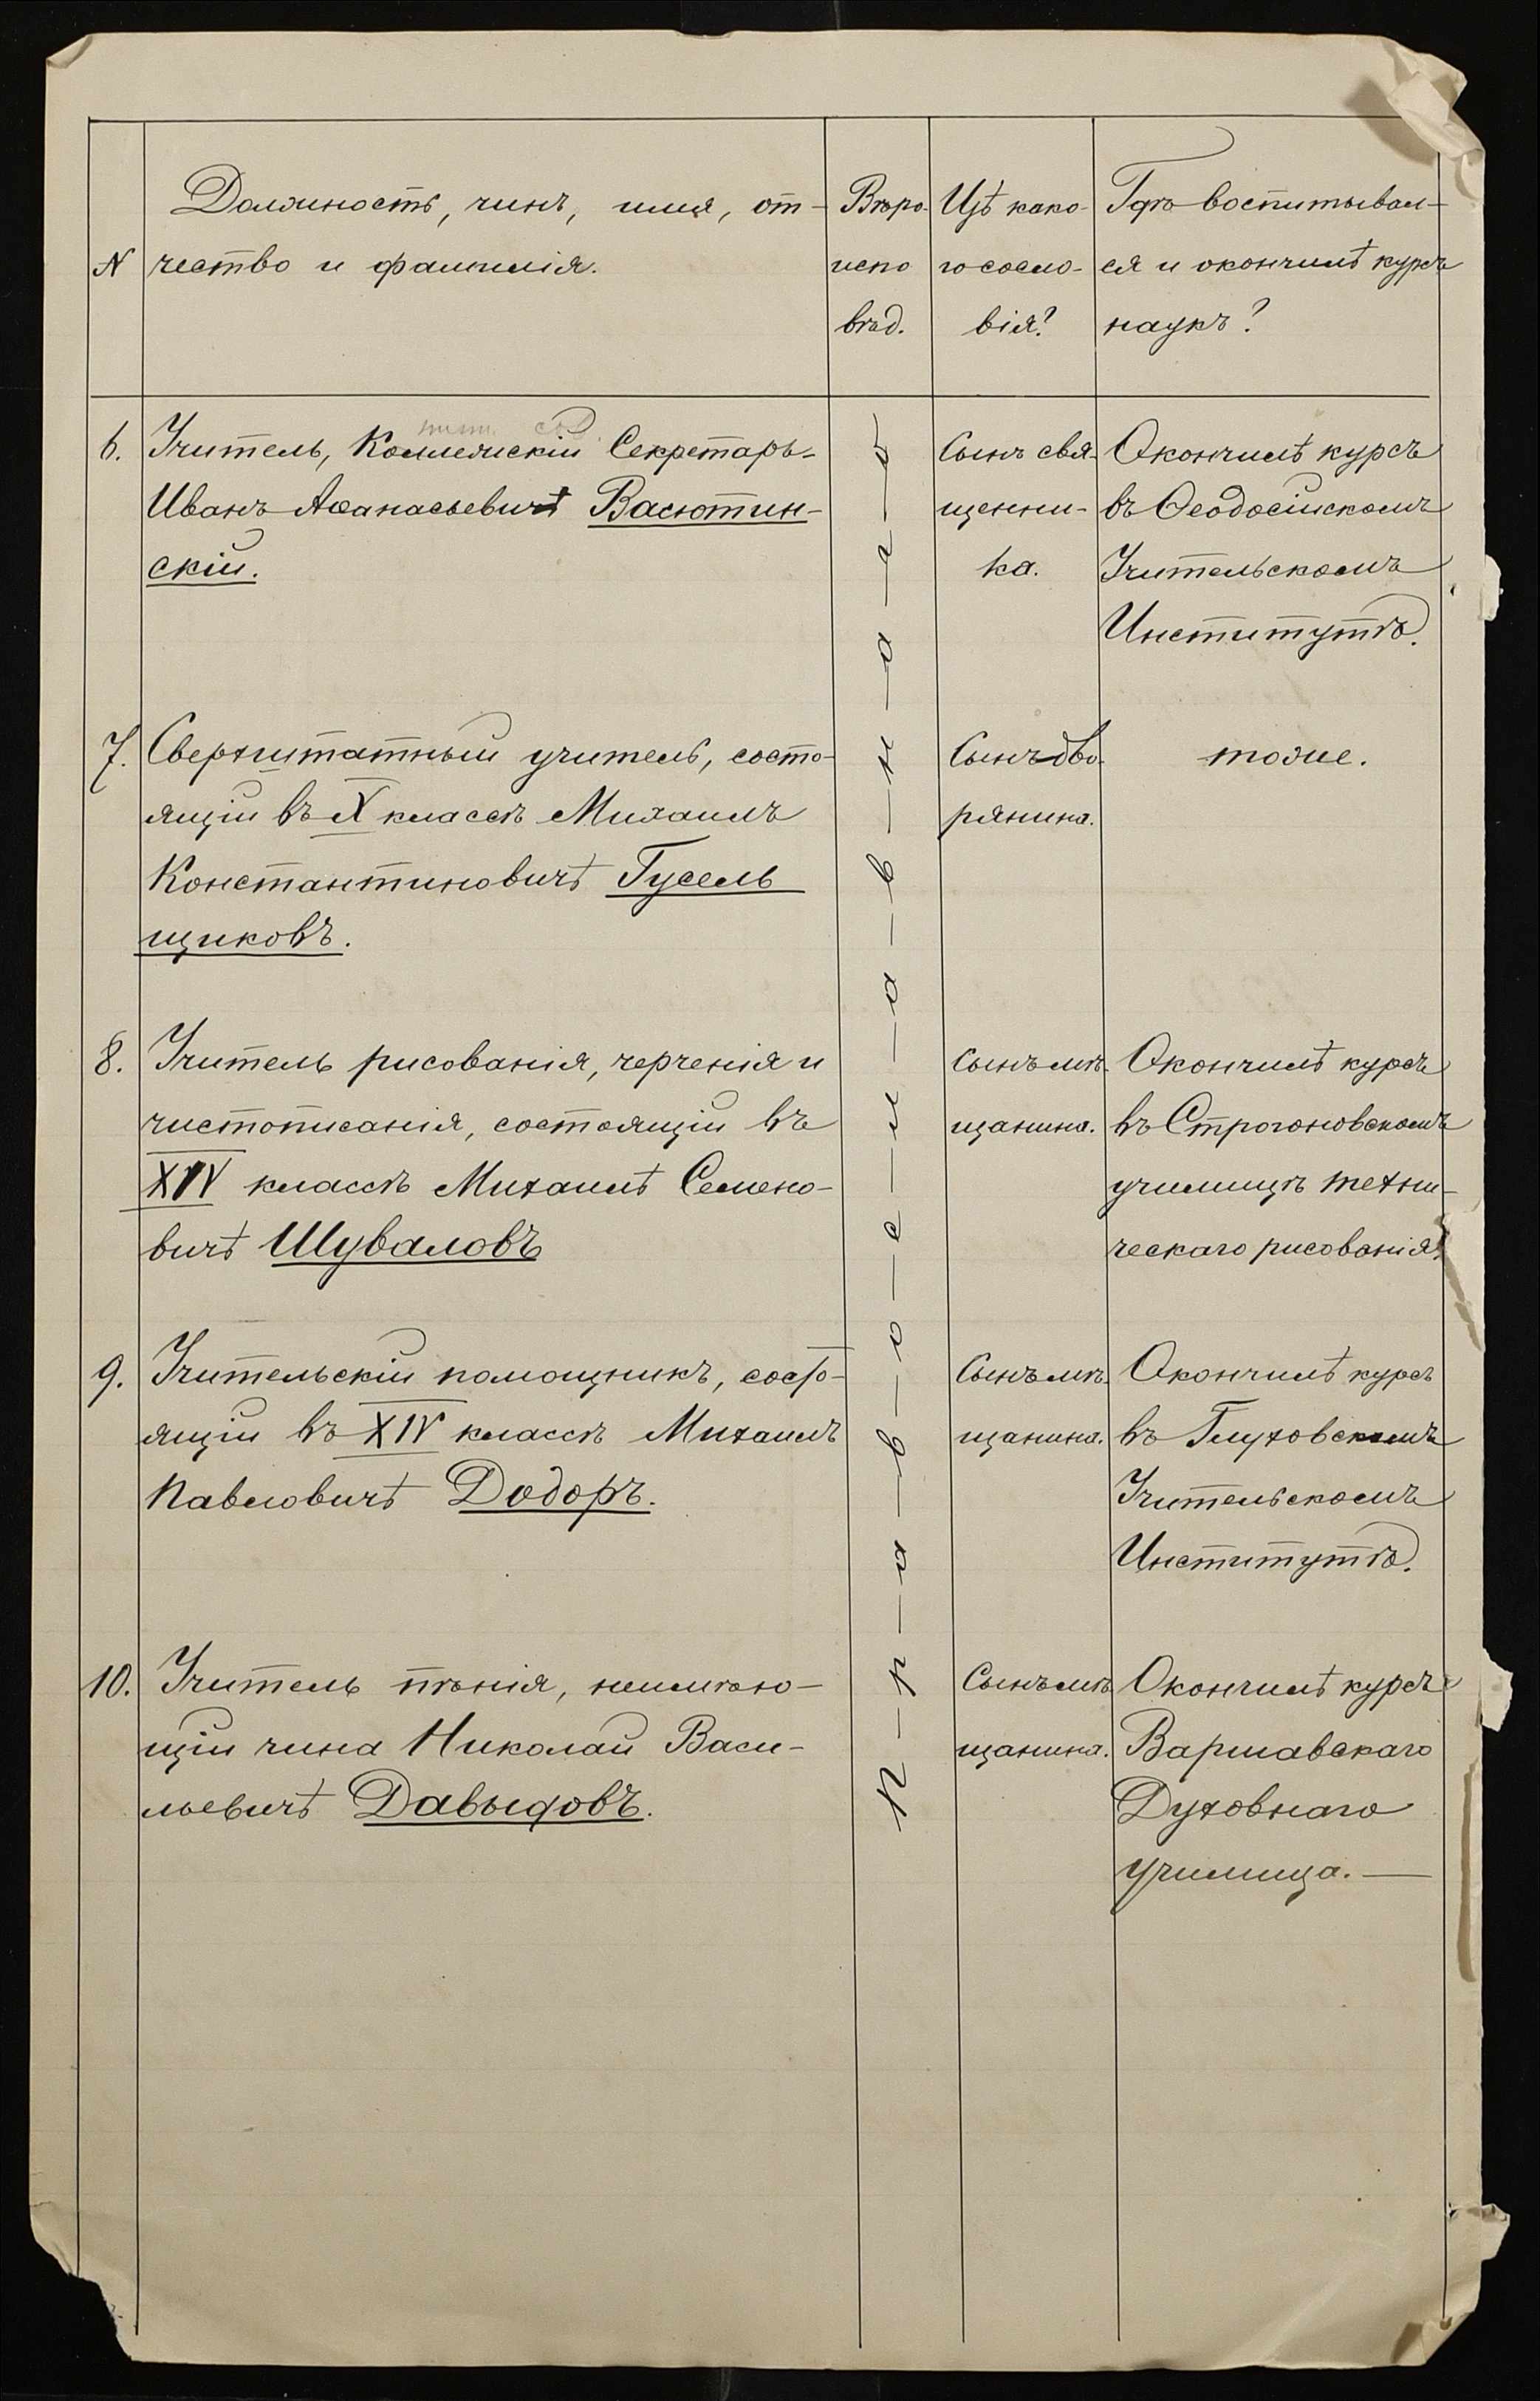 N
Должность, чинъ, имя, от-
чество и фамилія.
Вѣро-
испо
вѣд.
Изъ како-
го сосло-
вія?
Гдѣ воспитывал-
ся и окончилъ курсъ
наукъ?
П-р-а-в-о-с-л-а-в-н-а-г-о
6.
тит. сов.
Учитель, Коллежскій Секретарь-
Иванъ Аѳанасьевичъ Васютин-
скій.
Сынъ свя-
щенни-
ка.
Окончилъ курсъ
въ Ѳеодосійскомъ
Учительскомъ
Институтѣ.
7.
Сверхштатный учитель, состо-
ящій въ X классѣ Михаилъ
Константиновичъ Гусель
щиковъ.
Сынъ дво-
рянина.
тоже.
8.
Учитель рисованія, черченія и
чистописанія, состоящій въ
XIV классѣ Михаилъ Семено-
вичъ Шуваловъ
Сынъ мѣ-
щанина.
Окончилъ курсъ
въ Строгоновскомъ
училищѣ техни-
ческаго рисованія.
9.
Учительскій помощникъ, состо-
ящій въ XIV классѣ Михаилъ
Павловичъ Додоръ.
Сынъ мѣ-
щанина.
Окончилъ курсъ
въ Глуховскомъ
Учительскомъ
Институтѣ.
10.
Учитель пѣнія, неимѣю-
щій чина Николай Васи-
льевичъ Давыдовъ.
Сынъ мѣ-
щанина.
Окончилъ курсъ
Варшавскаго
Духовнаго
училища. —